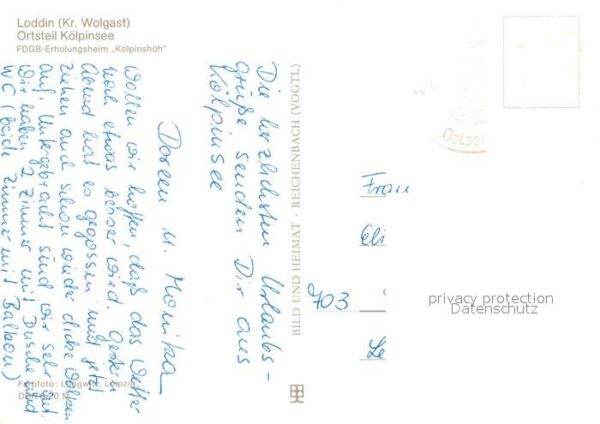 Loddin (Kr. Wolgast)
Ortsteil Kölpinsee
FDGB-Erholungsheim „Kölpinshöh"
Die herzlichsten Urlaubs-
grüße senden Dir aus
Kölpinsee
Doreen u. Monika
Wollen wir hoffen, daß das Wetter
noch etwas besser wird. Gestern
Abend hat es gegossen und jetzt
ziehen auch schon wieder dicke Wolken
auf. Untergebracht sind wir sehr gut.
Wir haben 2 Zimmer mit Dusche und
WC (beide Zimmer mit Balkon)
BILD UND HEIMAT · REICHENBACH (VOGTL)
Frau
Eli
703
Le
privacy protection
Datenschutz
Ostsee
Farbfoto: Leipzig
DDR 0,20 M